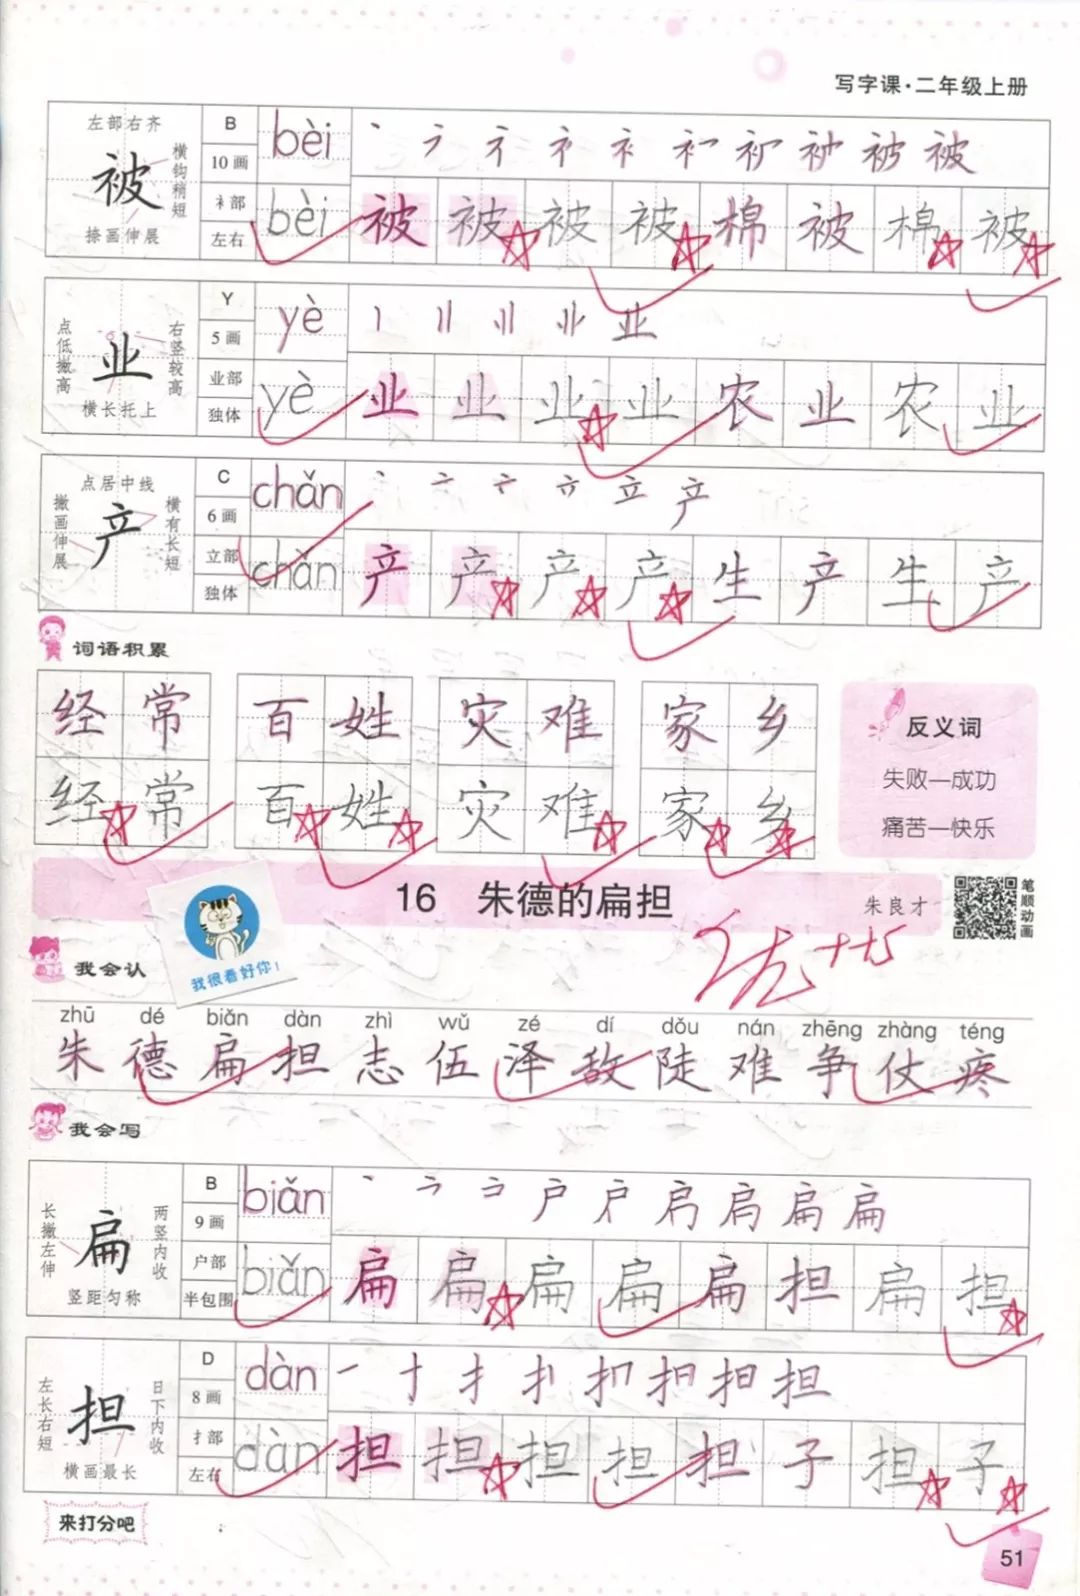 写字课·二年级上册
左部右齐
被
横钩稍短
捺画伸展
B
10画
衤部
左右
bèi
bèi
丶 衤 被
被 被 被 被 棉 被 棉 被
点低撇高
业
右竖较高
横长托上
Y
5画
业部
独体
yè
yè
丨 业
业 业 业 业 农 业 农 业
点居中线
撇画伸展
产
横有长短
C
6画
立部
独体
chǎn
chǎn
丶 亠 立 产
产 产 产 产 生 产 生 产
词语积累
经常 百姓 灾难 家乡
经常 百姓 灾难 家乡
反义词
失败—成功
痛苦—快乐
16 朱德的扁担
朱良才
笔顺动画
我很看好你!
优++
我会认
zhū dé biǎn dàn zhì wǔ zé dí dǒu nán zhēng zhàng téng
朱 德 扁 担 志 伍 泽 敌 陡 难 争 仗 疼
我会写
长撇左伸
扁
两竖内收
竖距匀称
B
9画
户部
半包围
biǎn
biǎn
丶 户 扁
扁 扁 扁 扁 扁 担 扁 担
左长右短
担
日下内收
横画最长
D
8画
扌部
左右
dàn
dàn
一 扌 担
担 担 担 担 担 子 担 子
来打分吧
51